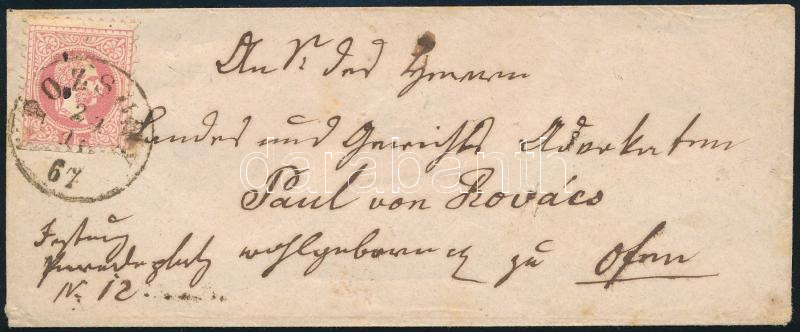 POZSONY
21
67
An Sr. des Herrn
Landes und Gerichts Advokaten
Paul von Kovács
wohlgeboren zu Ofen
Festung
Paradeplatz
N. 12
darabanth